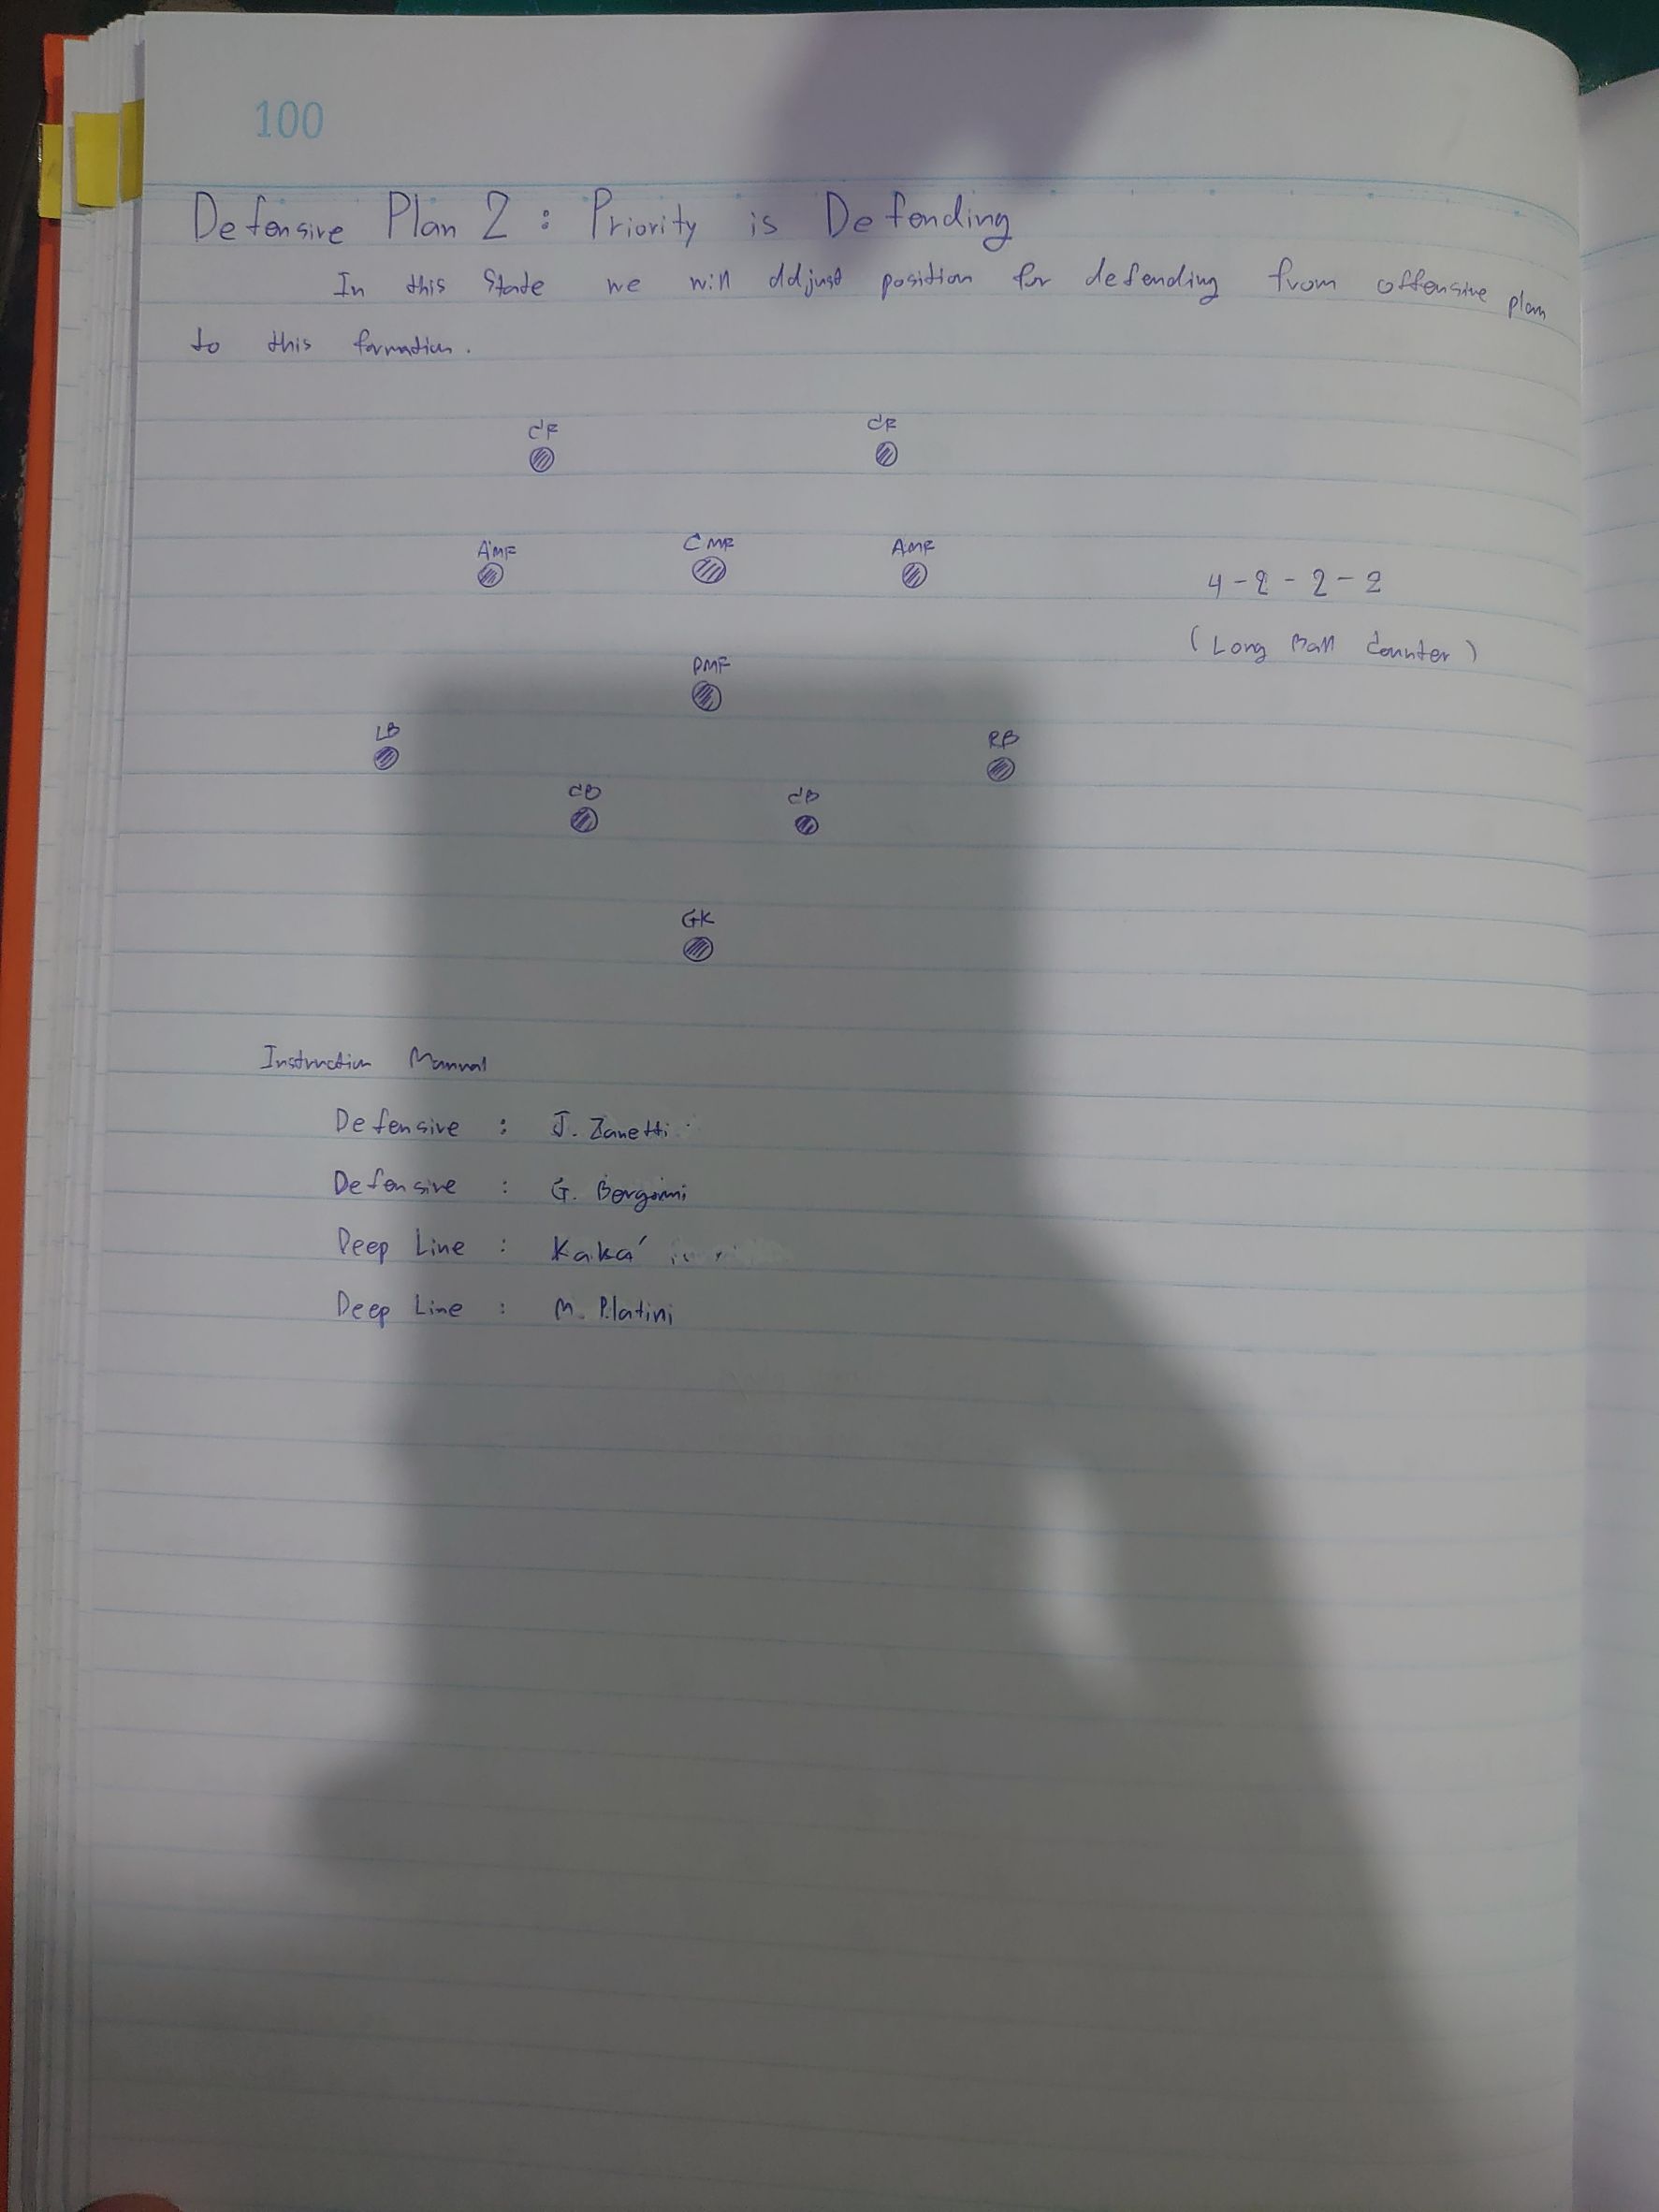 100
Defensive Plan 2 : Priority is Defending
In this State we will adjust position for defending from offensive plan
to this formation.
CF CF
AMF CMF AMF
4-2-2-2
(Long Ball Counter)
DMF
LB RB
CB CB
GK
Instruction Manual
Defensive : J. Zanetti
Defensive : G. Bergomi
Deep Line : Kaká
Deep Line : M. Platini